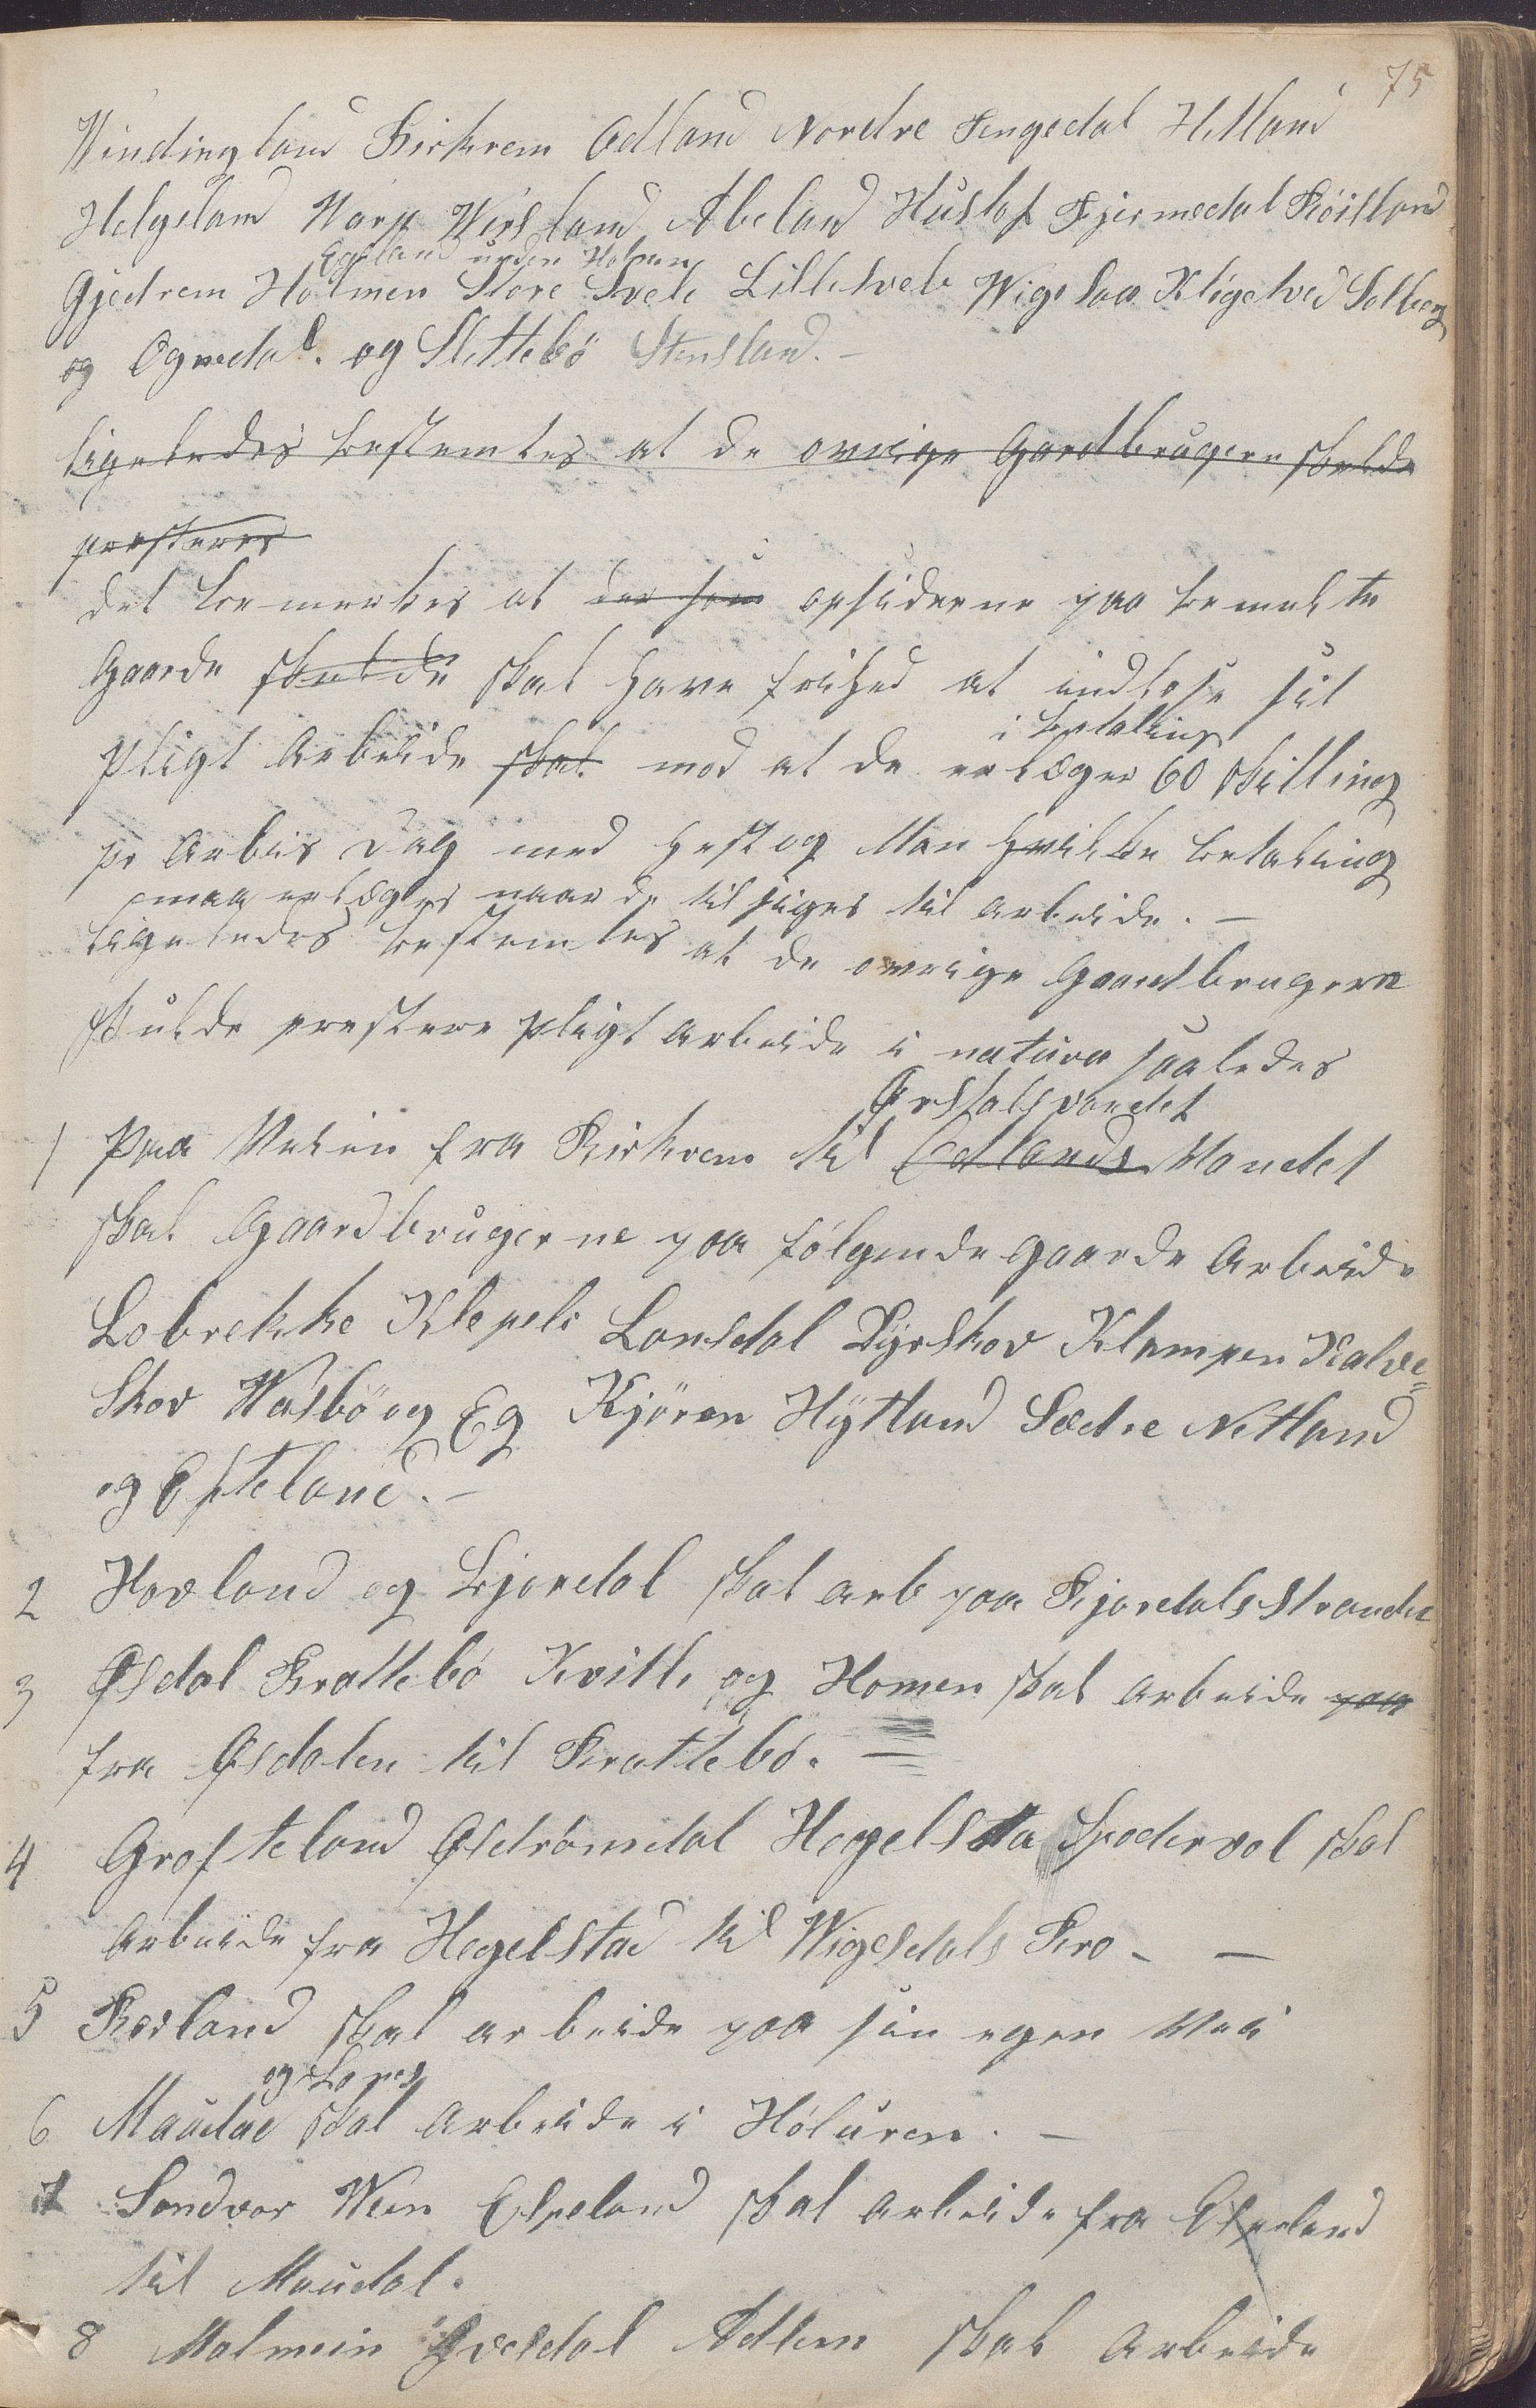 75
Vindingland Birkrem Ødland Nordre Tengedal Hetland
Helgeland Warp Virsland Abeland Huslof Fjermedal Røisland
Egeland under Holmen
Gjedrem Holmen Store Svele Lillesvele Wigesaa Kligelved Solberg
og Ognedal. og Slettebö Stensland. –
ligeledes bestemtes at de ovrige Gaardbrugere skulde
presteres
det bemerkes at der som opsiderne paa bemelte
Gaarde skulde skal have frihed at indløse sit
i betaling
Pligt Arbeide skal mod at de erlægger 60 skilling
pr Arbeis Dag med Hest og Man hvilken betaling
maa erlægges naar de tilsiges til arbeide. –
ligeledes bestemtes at de ovrige Gaardbrugere
skulde prestere Pligt Arbeide i natura saaledes
Ørsdalsvandet
1 Paa Veien fra Birkrem til Ødlands Vandet
skal Gaardbrugerne paa følgende gaarde Arbeide
Lobrekke Klepele Lonsdal Dyrskov Klampen Kalve=
skov Wasbö og Eg Kjören Hÿtland Sædre Netland
og Efteland. –
2 Hovland og Gjordal skal arb paa Gjordalsstranden
3 Øsdal Brattebø Kvitle og Homen skal Arbeide paa
fra Øsdalen til Brattebø. –
4 Grofteland Øströmdal Hegelsta Spodervol skal
Arbeide fra Hegelstad til Wigesdals Bro – –
5 Birland skal arbeide paa sin egen Vei
og Lopes
6 Maudal skal Arbeide i Höluren. –
7 Sandvar Ween Espeland skal Arbeide fra Espeland
til Maudal.
8 Malmein Qvesdal Adlem skal Arbeide